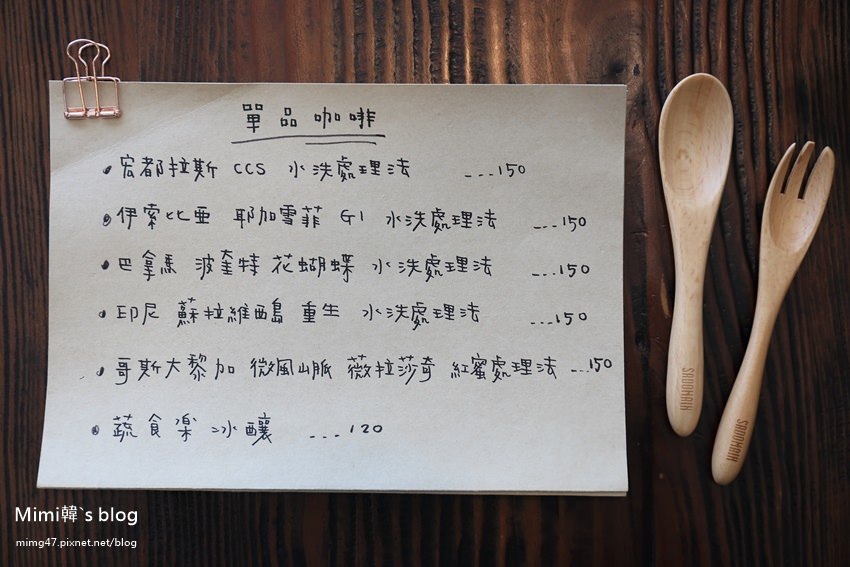 單品咖啡
宏都拉斯 CCS 水洗處理法 ---150
伊索比亜 耶加雪菲 G1 水洗處理法 ---150
巴拿馬 波奎特 花蝴蝶 水洗處理法 ---150
印尼 蘇拉維西島 重生 水洗處理法 ---150
哥斯大黎加 微風山脈 薇拉莎奇 紅蜜處理法 ---150
蔬食楽 冰釀 ----120
SADOMAIN
SADOMAIN
Mimi韓`s blog
mimg47.pixnet.net/blog